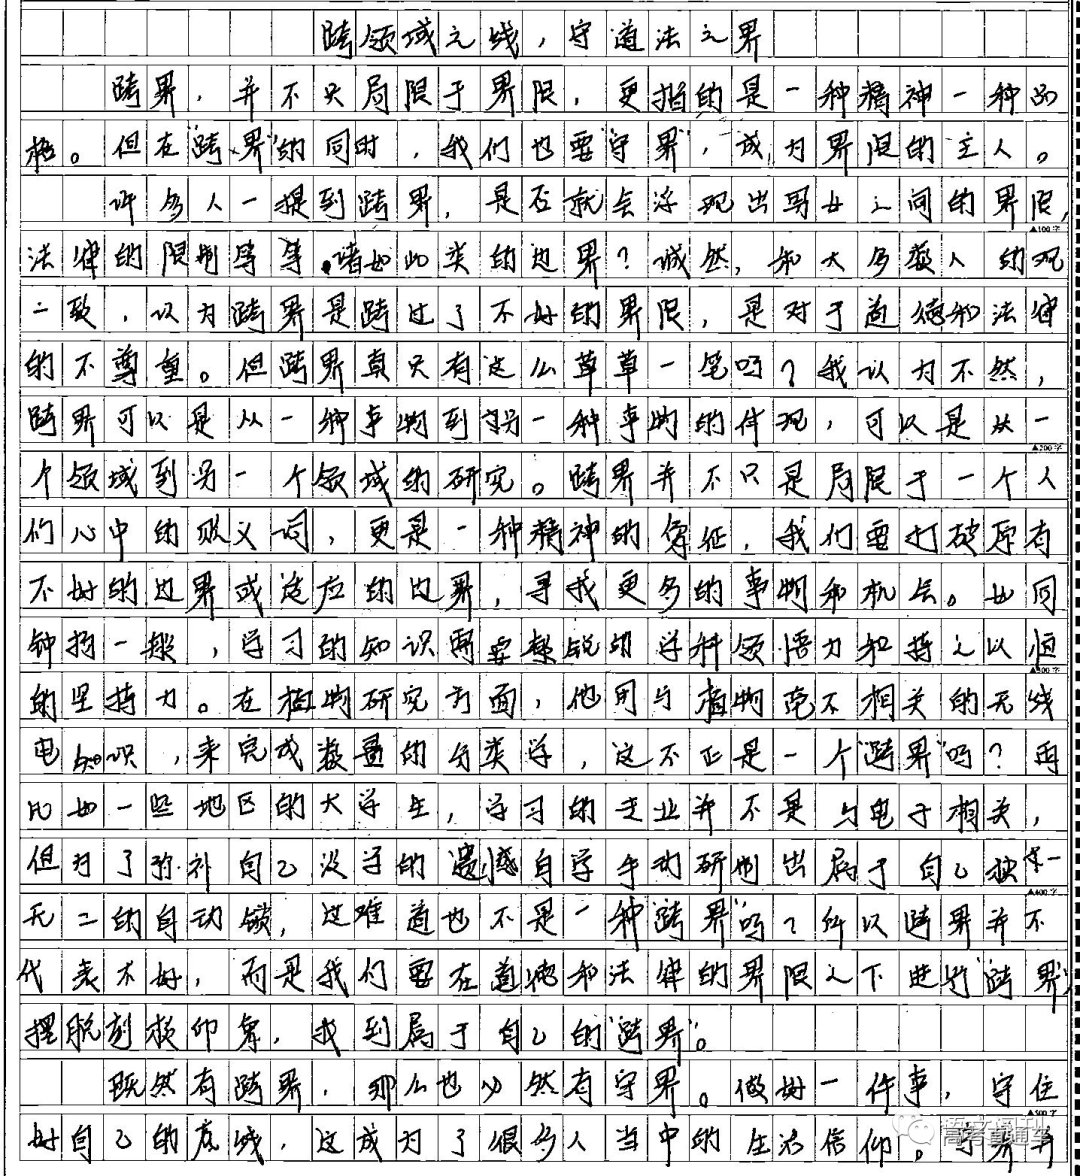 跨领域之线，守道法之界
跨界，并不只局限于界限，更指的是一种精神一种品
格。但在"跨界"的同时，我们也要"守界"，成为界限的主人。
许多人一提到跨界，是否就会浮现出男女之间的界限，
▲100字
法律的限制等等诸如此类的边界？诚然，和大多数人的观
一致，以为跨界是跨过了不好的界限，是对于道德和法律
的不尊重。但跨界真只有这么草草一笔吗？我以为不然，
跨界可以是从一种事物到另一种事物的体现，可以是从一
▲200字
个领域到另一个领域的研究。跨界并不只是局限于一个人
们心中的贬义词，更是一种精神的象征，我们要打破原有
不好的边界或适应的边界，寻找更多的事物和机会。如同
钟扬一般，学习的知识需要敏锐的学科领悟力和持之以恒
▲300字
的坚持力。在植物研究方面，他用与植物毫不相关的无线
电知识，来完成数量的分类学，这不正是一个"跨界"吗？再
比如一些地区的大学生，学习的专业并不是与电子相关，
但为了弥补自己没学的遗憾自学手动研制出属于自己独一
▲400字
无二的自动锁，这难道也不是一种"跨界"吗？所以跨界并不
代表不好，而是我们要在道德和法律的界限之下进行"跨界"，
摆脱刻板印象，找到属于自己的"跨界"。
既然有跨界，那么也必然有守界。做好一件事，守住
▲500字
好自己的底线，这成为了很多人当中的生活信仰。守界并
高考直通车